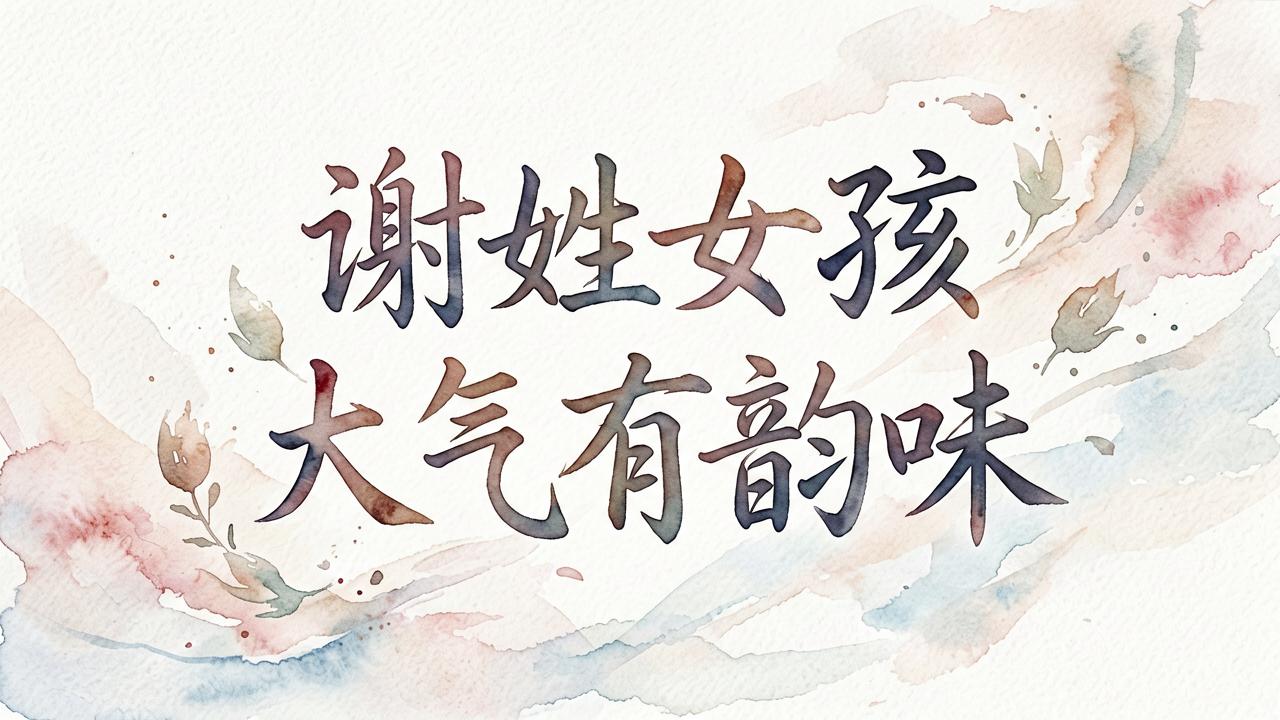 谢姓女孩
大气有韵味